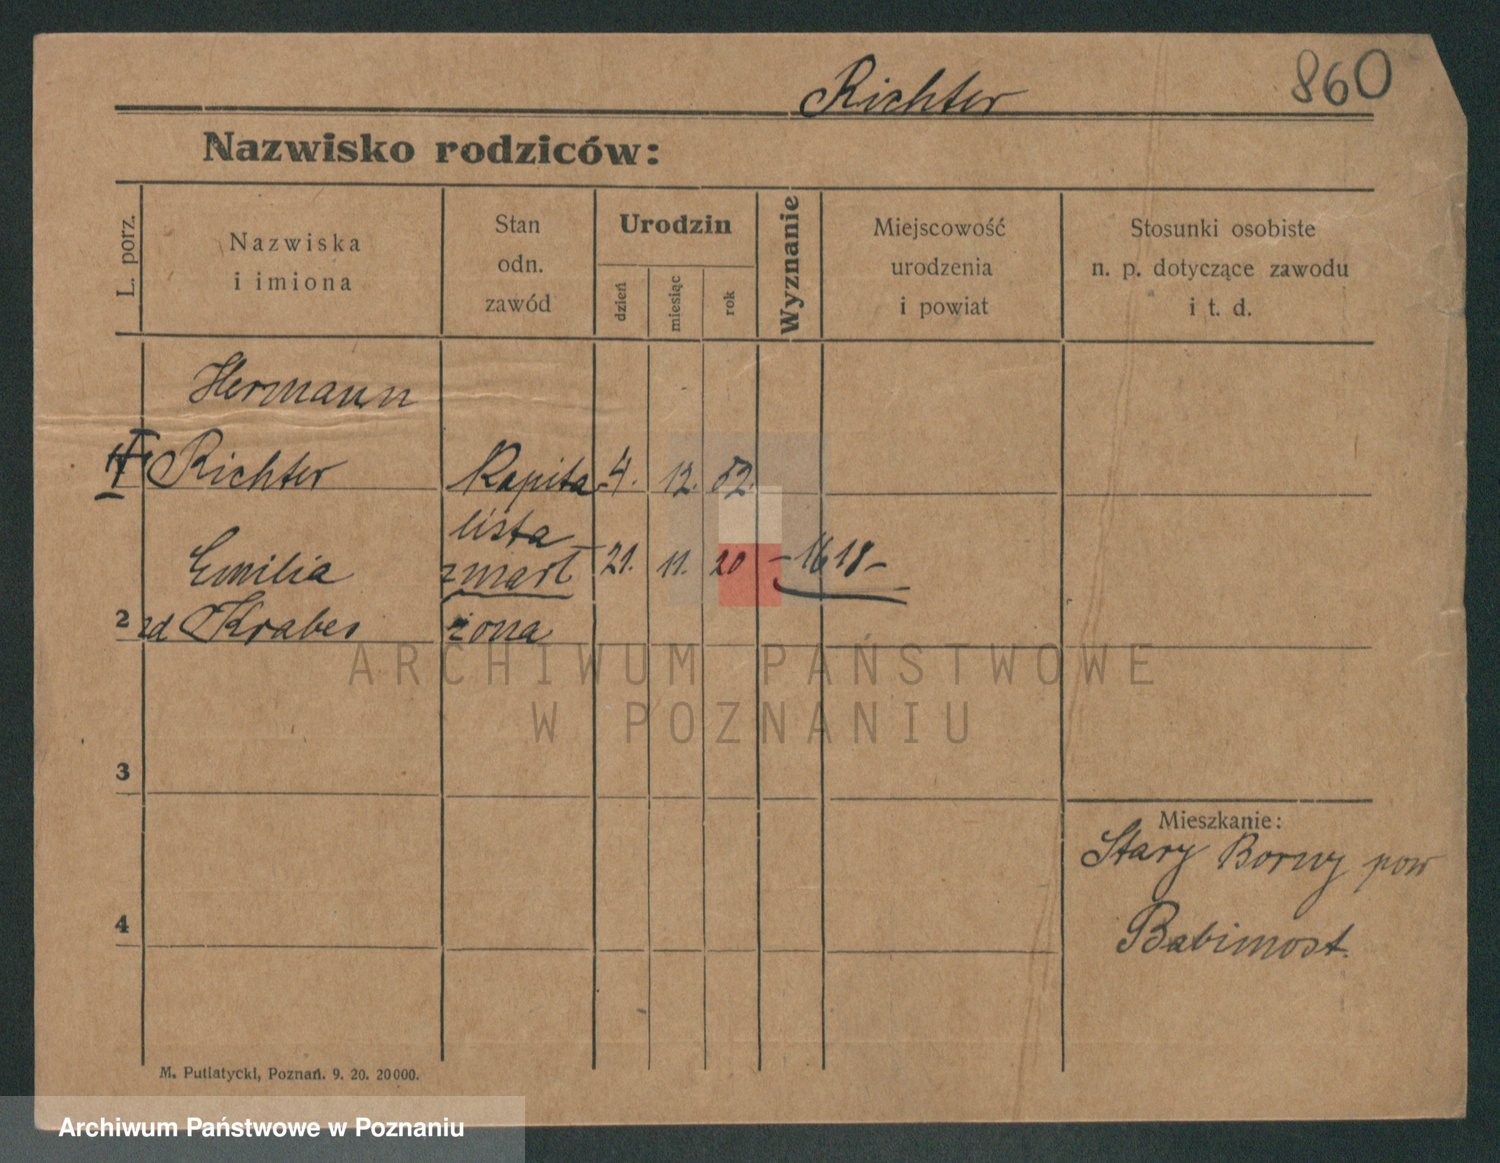 Richter
860
Nazwisko rodziców:
L. porz.
Nazwiska
i imiona
Stan
odn.
zawód
Urodzin
dzień
miesiąc
rok
Wyznanie
Miejscowość
urodzenia
i powiat
Stosunki osobiste
n. p. dotyczące zawodu
i t. d.
Hermann
Richter Kapita 4. 12. 52.
lista
Emilia zmarł 21. 11. 20 -1618-
2 zd Krabes żona
ARCHIWUM PAŃSTWOWE
W POZNANIU
3
Mieszkanie:
Stary Boruy pow
Babimost.
4
M. Putiatycki, Poznań. 9. 20. 20000.
Archiwum Państwowe w Poznaniu